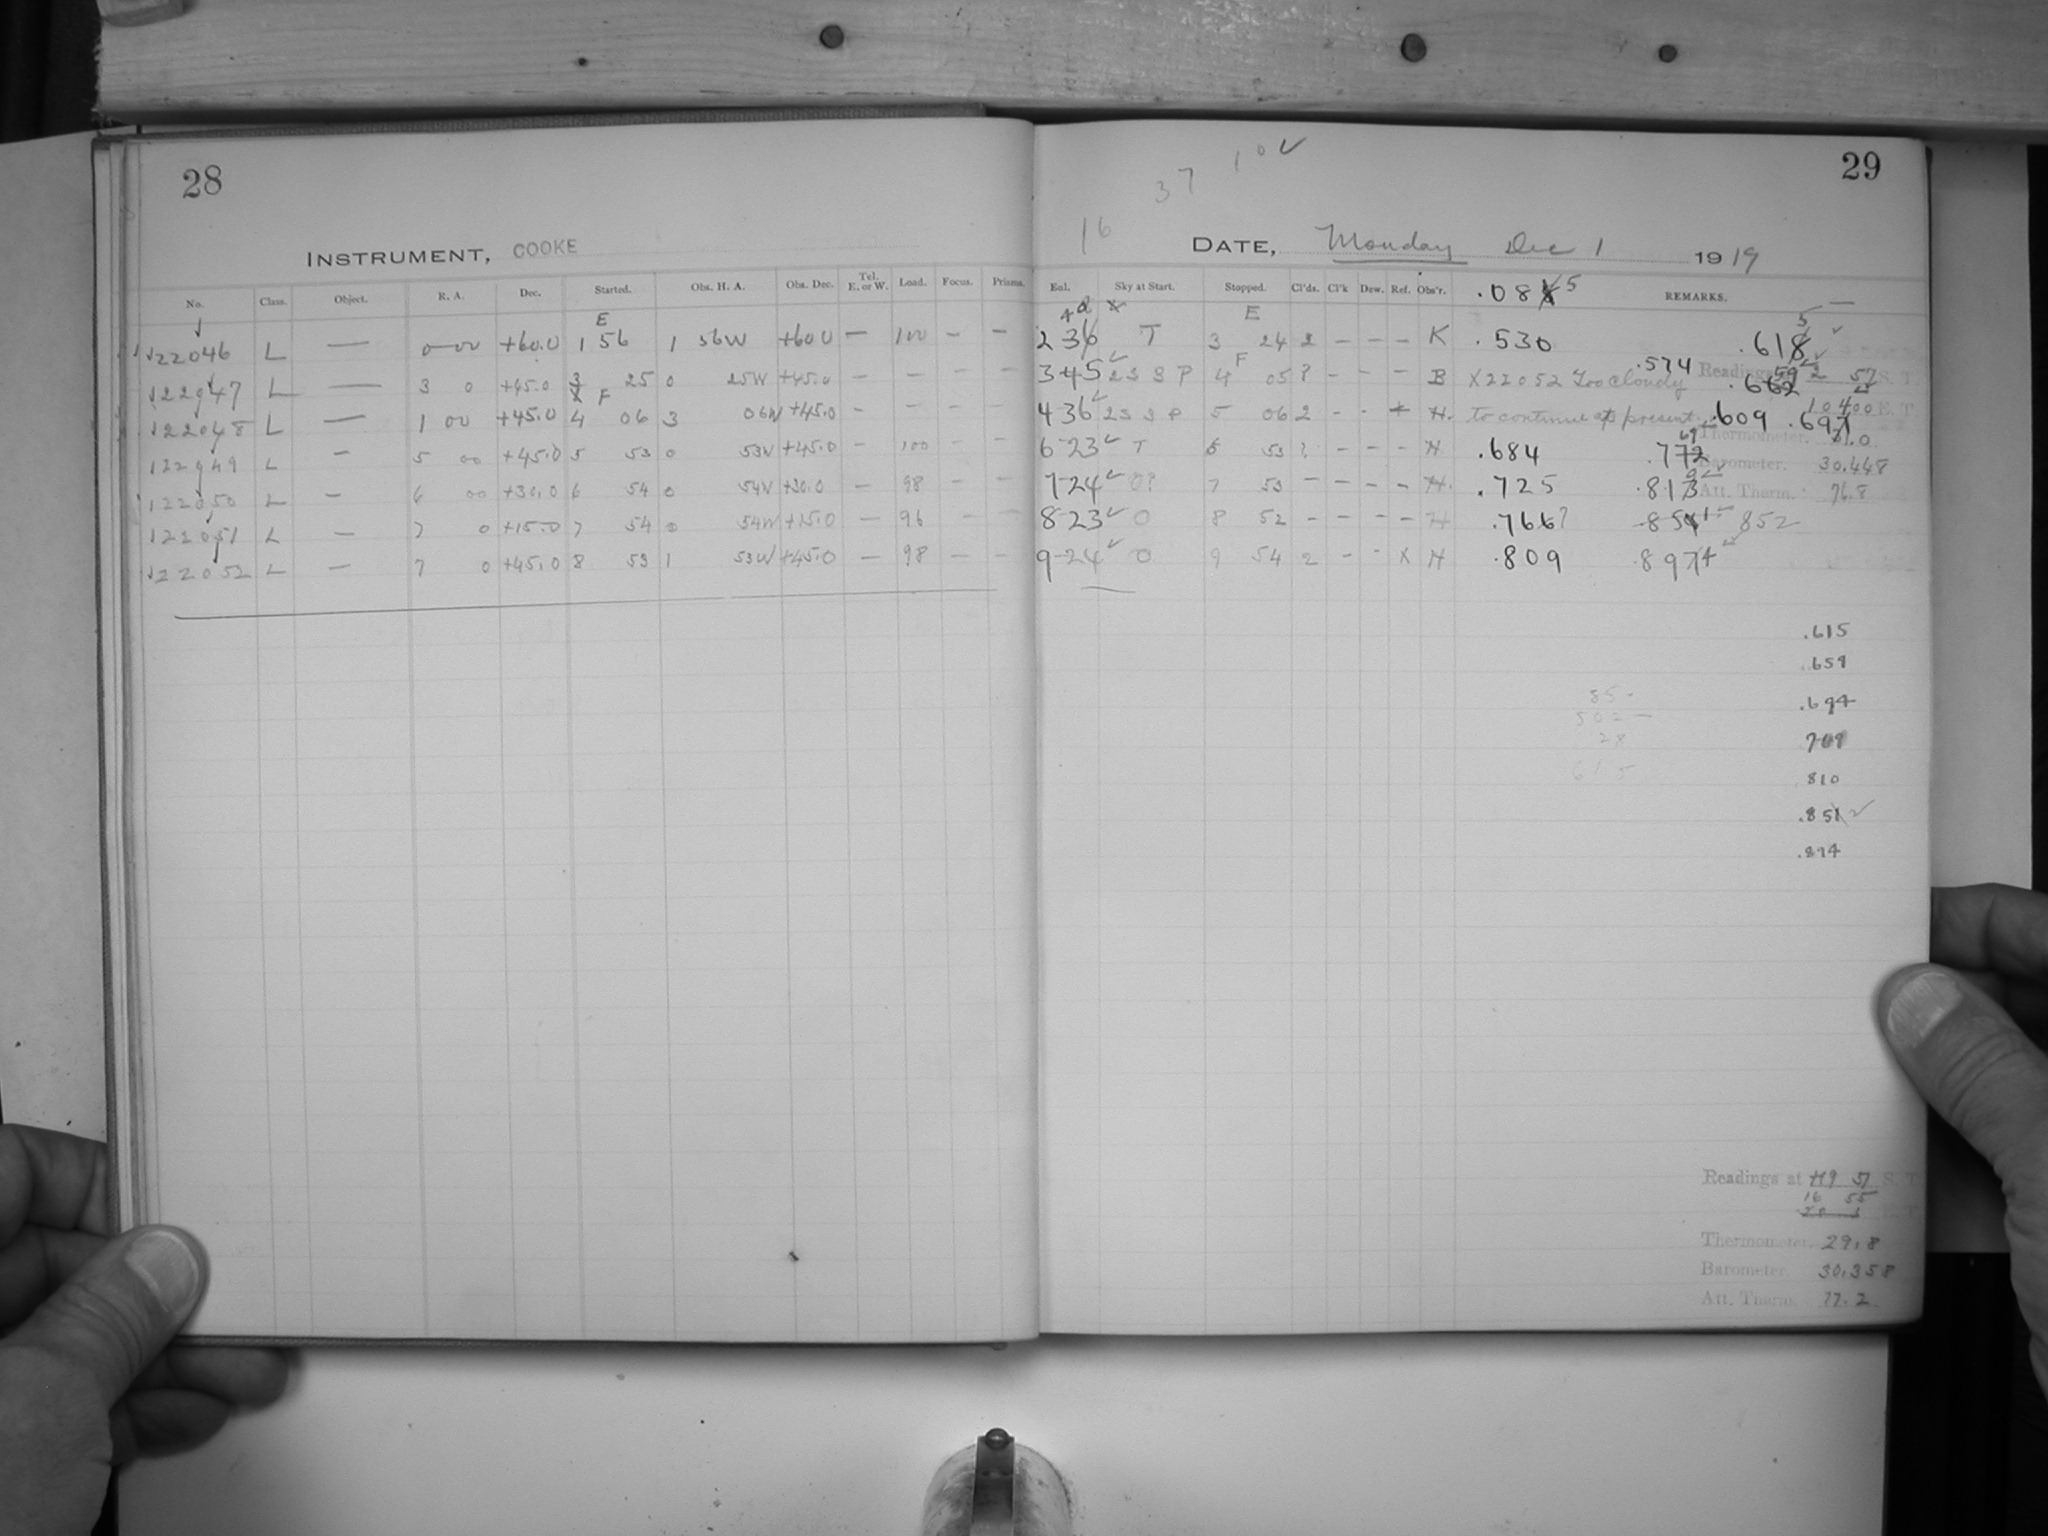 28
INSTRUMENT, COOKE
No. Class. Object. R. A. Dec. Started. Obs. H. A. Obs. Dec. Tel. E. or W. Load. Focus. Prisms.
E
22046 L — 0 00 +60.0 1 56 1 56W +60.0 — 100 — —
22047 L — 3 0 +45.0 3 25 0 25W +45.0 — — — —
F
22048 L — 1 00 +45.0 4 06 3 06W +45.0 - - - -
22049 L — 5 00 +45.0 5 53 0 53W +45.0 - 100 - -
22050 L — 6 00 +30.0 6 54 0 54W +30.0 — 98 - -
22051 L — 7 0 +15.0 7 54 0 54W +15.0 — 96 - -
22052 L — 7 0 +45.0 8 53 1 53W +45.0 — 98 — —
29
37 10
16
DATE, Monday Dec 1 1919
Eal. Sky at Start. Stopped. Cl'ds. Cl'k Dew. Ref. Obs'r. .088 5 REMARKS.
E
2 36 T 3 24 2 — — — K .530 .618 5
F
3 45 2 S S P 4 05 ? - - - B X22052 Too cloudy .574 .662 59
Readings 2 57 S. T.
4 36 2 S S P 5 06 2 - - + H. to continue at present. .609 .697
10 400 E. T.
6 23 T 6 53 ? - - - H .684 .772 69
Thermometer. 31.0
7 24 0? 7 53 - - - - H. .725 .813
Barometer. 30.448
Att. Therm. 76.8
8 23 0 8 52 - - - - H .766? .854 1 852
9 24 0 9 54 2 - - X H .809 .897 4
.615
.659
.694
769
810
.851
.894
85
502
28
615
Readings at 19 57 S. T.
16 55
Thermometer. 29.8
Barometer. 30.358
Att. Therm. 77.2